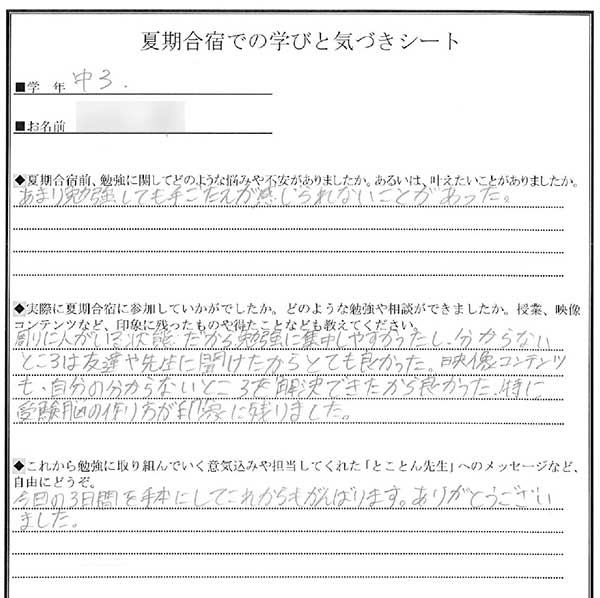 夏期合宿での学びと気づきシート
■学 年 中3.
■お名前
◆夏期合宿前、勉強に関してどのような悩みや不安がありましたか。あるいは、叶えたいことがありましたか。
あまり勉強しても手ごたえが感じられないことがあった。
◆実際に夏期合宿に参加していかがでしたか。どのような勉強や相談ができましたか。授業、映像
コンテンツなど、印象に残ったものや得たことなども教えてください。
周りに人がいる状態だから勉強に集中しやすかったし、分からない
ところは友達や先生に聞けたからとても良かった。映像コンテンツ
も、自分の分からないところを解決できたから良かった。特に
受験脳の作り方が印象に残りました。
◆これから勉強に取り組んでいく意気込みや担当してくれた「とことん先生」へのメッセージなど、
自由にどうぞ。
今回の3日間を手本にしてこれからもがんばります。ありがとうござい
ました。